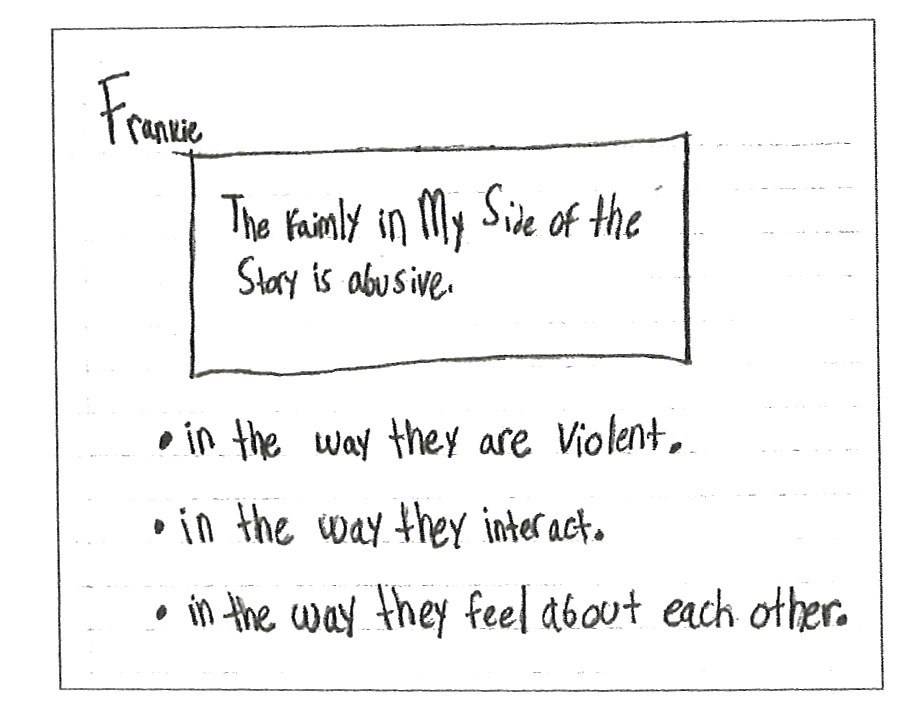 Frankie
The Faimly in My Side of the
Story is abusive.
• in the way they are Violent.
• in the way they interact.
• in the way they feel about each other.